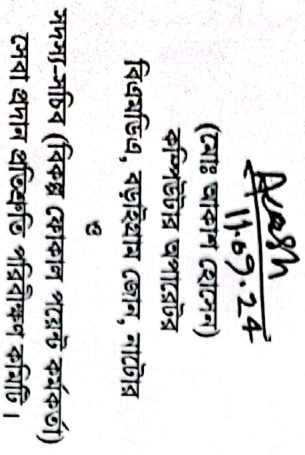 Akash
11.09.24
(মোঃ আকাশ হোসেন)
কম্পিউটার অপারেটর
বিএমডিএ, বড়াইগ্রাম জোন, নাটোর
ও
সদস্য-সচিব (বিকল্প ফোকাল পয়েন্ট কর্মকর্তা)
সেবা প্রদান প্রতিশ্রুতি পরিবীক্ষণ কমিটি।